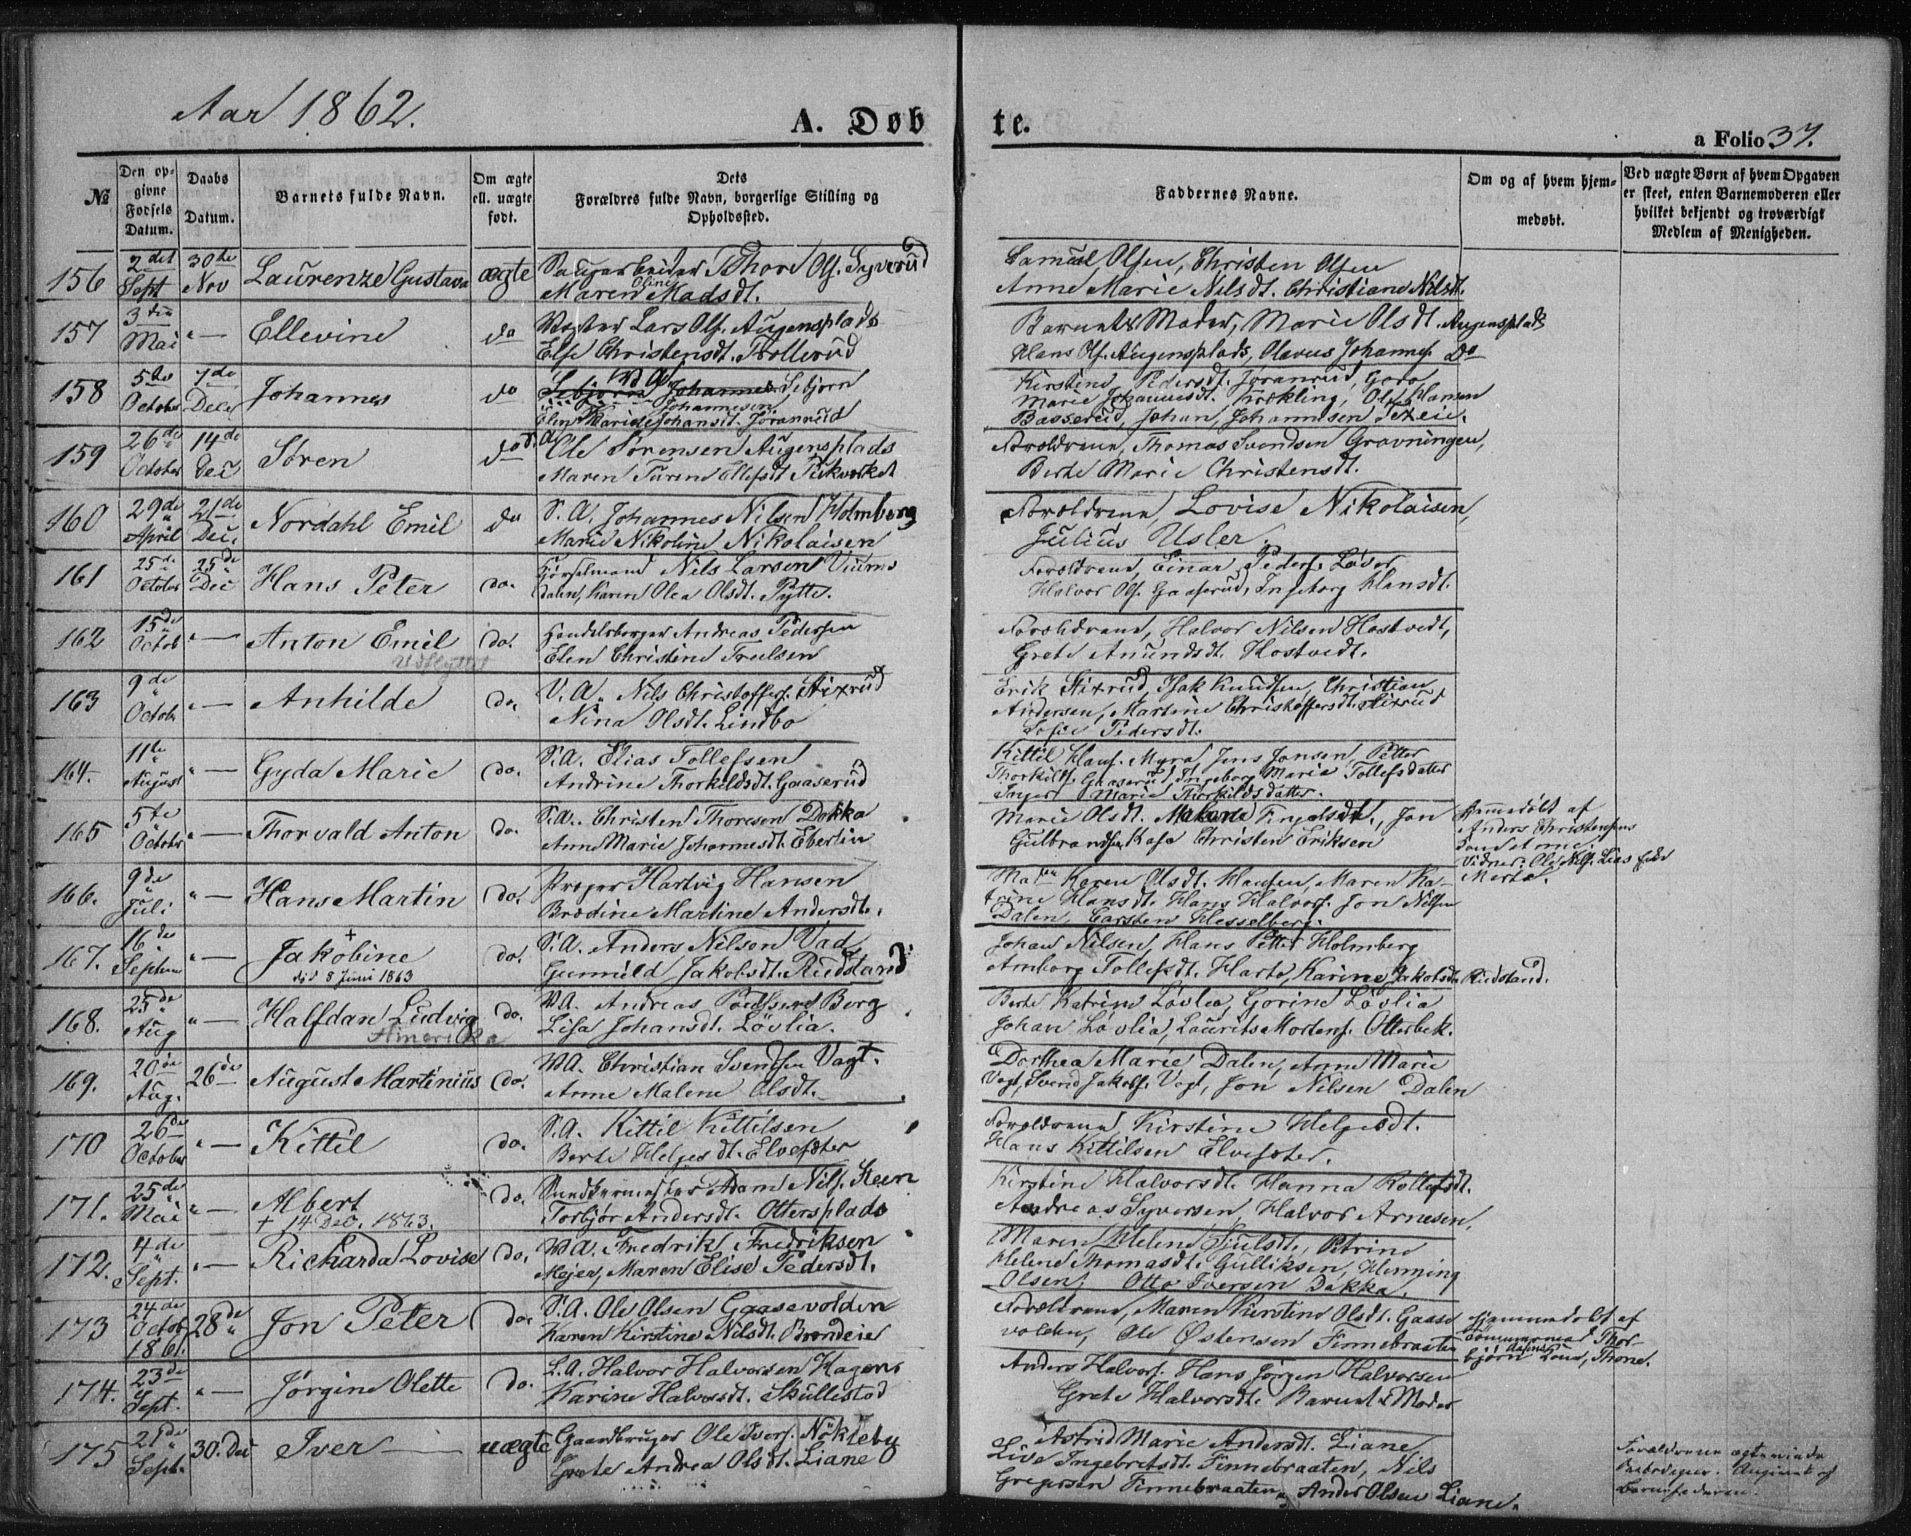 Aar 1862.
A. Døbte.
a Folio 37.
№
Den opgivne Fødsels Datum.
Daabs Datum.
Barnets fulde Navn.
Om ægte ell. uægte født.
Dets Forældres fulde Navn, borgerlige Stilling og Opholdssted.
Faddernes Navne.
Om og af hvem hjemmedøbt.
Ved uægte Børn af hvem Opgaven er skeet, enten Barnemoderen eller hvilket bekjendt og troværdigt Medlem af Menigheden.
156 2det Sept 30te Nov Laurenze Gustava ægte Saugarbeider Thore Ols. Syverud
Maren Oline Madsdt.
Samuel Olsen, Christen Olsen
Anne Marie Nilsdt. Christiane Nilsdt.
157 3die Mai "— Ellevine do Lars Ols. Augensplads
Else Christensdt. Tollerud
Barnets Moder, Marie Olsdt. Augensplads
Hans Ols. Augensplads, Olavus Johannes. Do
158 5te October 7de Decbr Johannes do Johannes Sebjørn
Johannesen
Elen Marie Johansdt. Jøranrud
Kirstine Pedersdt. Jøranrud, Goro
Marie Johannesdt. Trækling, Ole Hansen
Basserud, Johan Johannesen
159 26de October 14de Dec Søren do Ole Sørensen Augensplads
Maren Turine Ellefsdt.
Forældrene, Thomas Svendsen Gravningen,
Berte Marie Christensdt.
160 29de April 21de Dec. Nordahl Emil do S.A. Johannes Nilsen Holmberg
Marie Nikoline Nikolaisen
Forældrene, Lovise Nikolaisen,
Julius Usler.
161 25de October 25de Dec Hans Peter do. Kjørselmand Nils Larsen
dalen, Karen Olea Olsdt. Pytte.
Forældrene, Einar Peders. Løver
Halvor Ols. Gaaserud, Ingeborg Hansdt.
162 15de Octob "— Anton Emil do. Handelsborger Andreas Pedersen
Udflyttet
Elen Christine Truelsen
Forældrene, Halvor Nilsen Hostvedt,
Grete Anundsdt. Hostvedt.
163 9de Octobr "— Anhilde do. V.A. Nils Christoffers. Stixrud
Nina Olsdt. Lindbo
Erik Stixrud, Isak Knudsen, Christian
Andersen, Martine Christoffersdt. Stixrud
Sofie Pedersdt.
164. 11te August "— Gyda Marie do. S.A. Elias Tollefsen
Andrine Thorkildsdt. Gaaserud
Kittil Hans. Myra, Jens Jansen, Petter
Thorkilds. Gaaserud, Ingeborg Maria Tollefsdatter
Inger Marie Thorkildsdatter.
165 5te October "— Thorvald Anton do. S.A. Christen Thoresen Dokka
Anne Marie Johannesdt. Eberlin
Marie Olsdt. Malene Jon
Gulbrandsen Kase Christen Eriksen
Hjemmedøbt af
Anders Christensens
Kone Anne.
Vidner: Ole Nils. Lias
166. 9de Juli "— Hans Martin do. Hartvig Hansen
Brødine Martine Andersdt.
Karen Olsdt. Hansen, Maren Ka-
trine Hansdt. Hans Halvors. Jon Nilsen
Dalen, Carsten Hesselberg.
167. 16de Septem "— Jakobine do. S.A. Anders Nilsen Vad
død 8 Juni 1863
Gunnild Jakobsdt. Rudstand
Johan Nilsen, Hans Petter Holmberg
Amborg Tollefsdt. Harte, Karine Jakobsdt Rudstand.
168. 25de Aug "— Halfdan Ludvig do. V.A. Andreas Berg
Amerika
Lisa Johansdt. Løvlia.
Berte Katrine Løvlia, Gorine Løvlia
Johan Løvlia, Laurits Mortens. Otterbek.
169. 20de Aug. 26de August Martinius do. V.A. Christian Svendsen Vogt.
Anne Malene Olsdt.
Dorthea Marie Dalen, Anne Marie
Vogt, Svend Jakobs. Vogt, Jon Nilsen Dalen
170 26de October "— Kittil do. S.A. Kittil Kittilsen
Berte Helgesdt. Elvesæter
Forældrene, Kirstine Helgesdt.
Hans Kittilsen Elvesæter.
171. 25de Mai "— Albert do. Adam Nils. Steen
+ 14 Dec. 1863.
Torbjør Andersdt. Ottersplads
Kirstine Halvorsdt. Hanna Rollefsdt.
Andreas Syversen, Halvor Arnesen.
172. 4de Sept. "— Richarda Lovise do. V.A. Fredrik Fredriksen
Mejer, Maren Elise Pedersdt.
Maren Helene Petrine
Helene Thomasdt. Gulliksen, Henning
Olsen, Otto Iversen Dokka.
173 24de Octob 1861. 28de Jon Peter do. S.A. Ole Olsen Gaasevolden
Karen Kirstine Nilsdt. Brondeier
Forældrene, Maren Kirstine Olsdt. Gaase
volden, Ole Østensen Finnebraaten
Hjemmedøbt af
Tømmermand Thor-
bjørn Olsens Kone, Thone.
174. 23de Sept. "— Jørgine Olette do. S.A. Halvor Halvorsen Hagen
Karine Halvorsdt. Skullestad
Anders Halvors. Hans Jørgen Halvorsen
Grete Halvorsdt. Barnets Moder
175 21de Sept. 30. Dec Iver — uægte Gaardbruger Ole Ivers. Nökleby
Grete Andrea Olsdt. Liane
Astrid Marie Andersdt. Liane
Live Ingebretsdt. Finnebraaten, Nils
Gregersen Finnebraaten, Anders Olsen Liane.
Forældrene agtevinde
Angivet af
Barnefaderen.